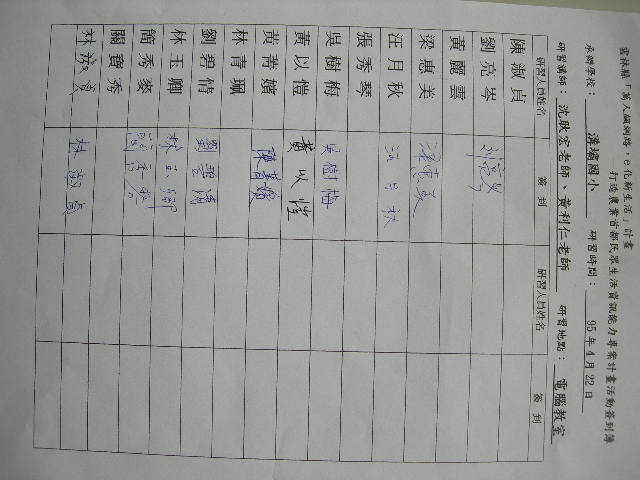 雲林縣「萬人縱網路，e化新生活」計畫
打造農業首都民眾生活資訊能力專案計畫活動簽到簿
承辦學校： 溝壩國小 研習時間： 95年4月22日
研習講師：沈耿宏老師、黃利仁老師 研習地點：電腦教室
研習人員姓名 簽到 研習人員姓名 簽到
陳淑貞
劉亮岑 劉亮岑
黃麗雲
梁惠美 梁惠美
汪月秋 汪月秋
張秀琴
吳樹梅 吳樹梅
黃以愷 黃以愷
黃菁嬪
林青珮
劉碧倩
林玉卿 林玉卿
簡秀麥 簡秀麥
關寶秀
林淑貞 林淑貞